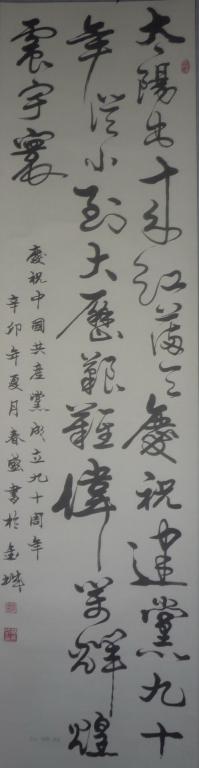 太陽出來紅滿天慶祝建黨九十
年從小到大歷艱難偉業輝煌
震宇寰
慶祝中國共産黨成立九十周年
辛卯年夏月春盛書於金城